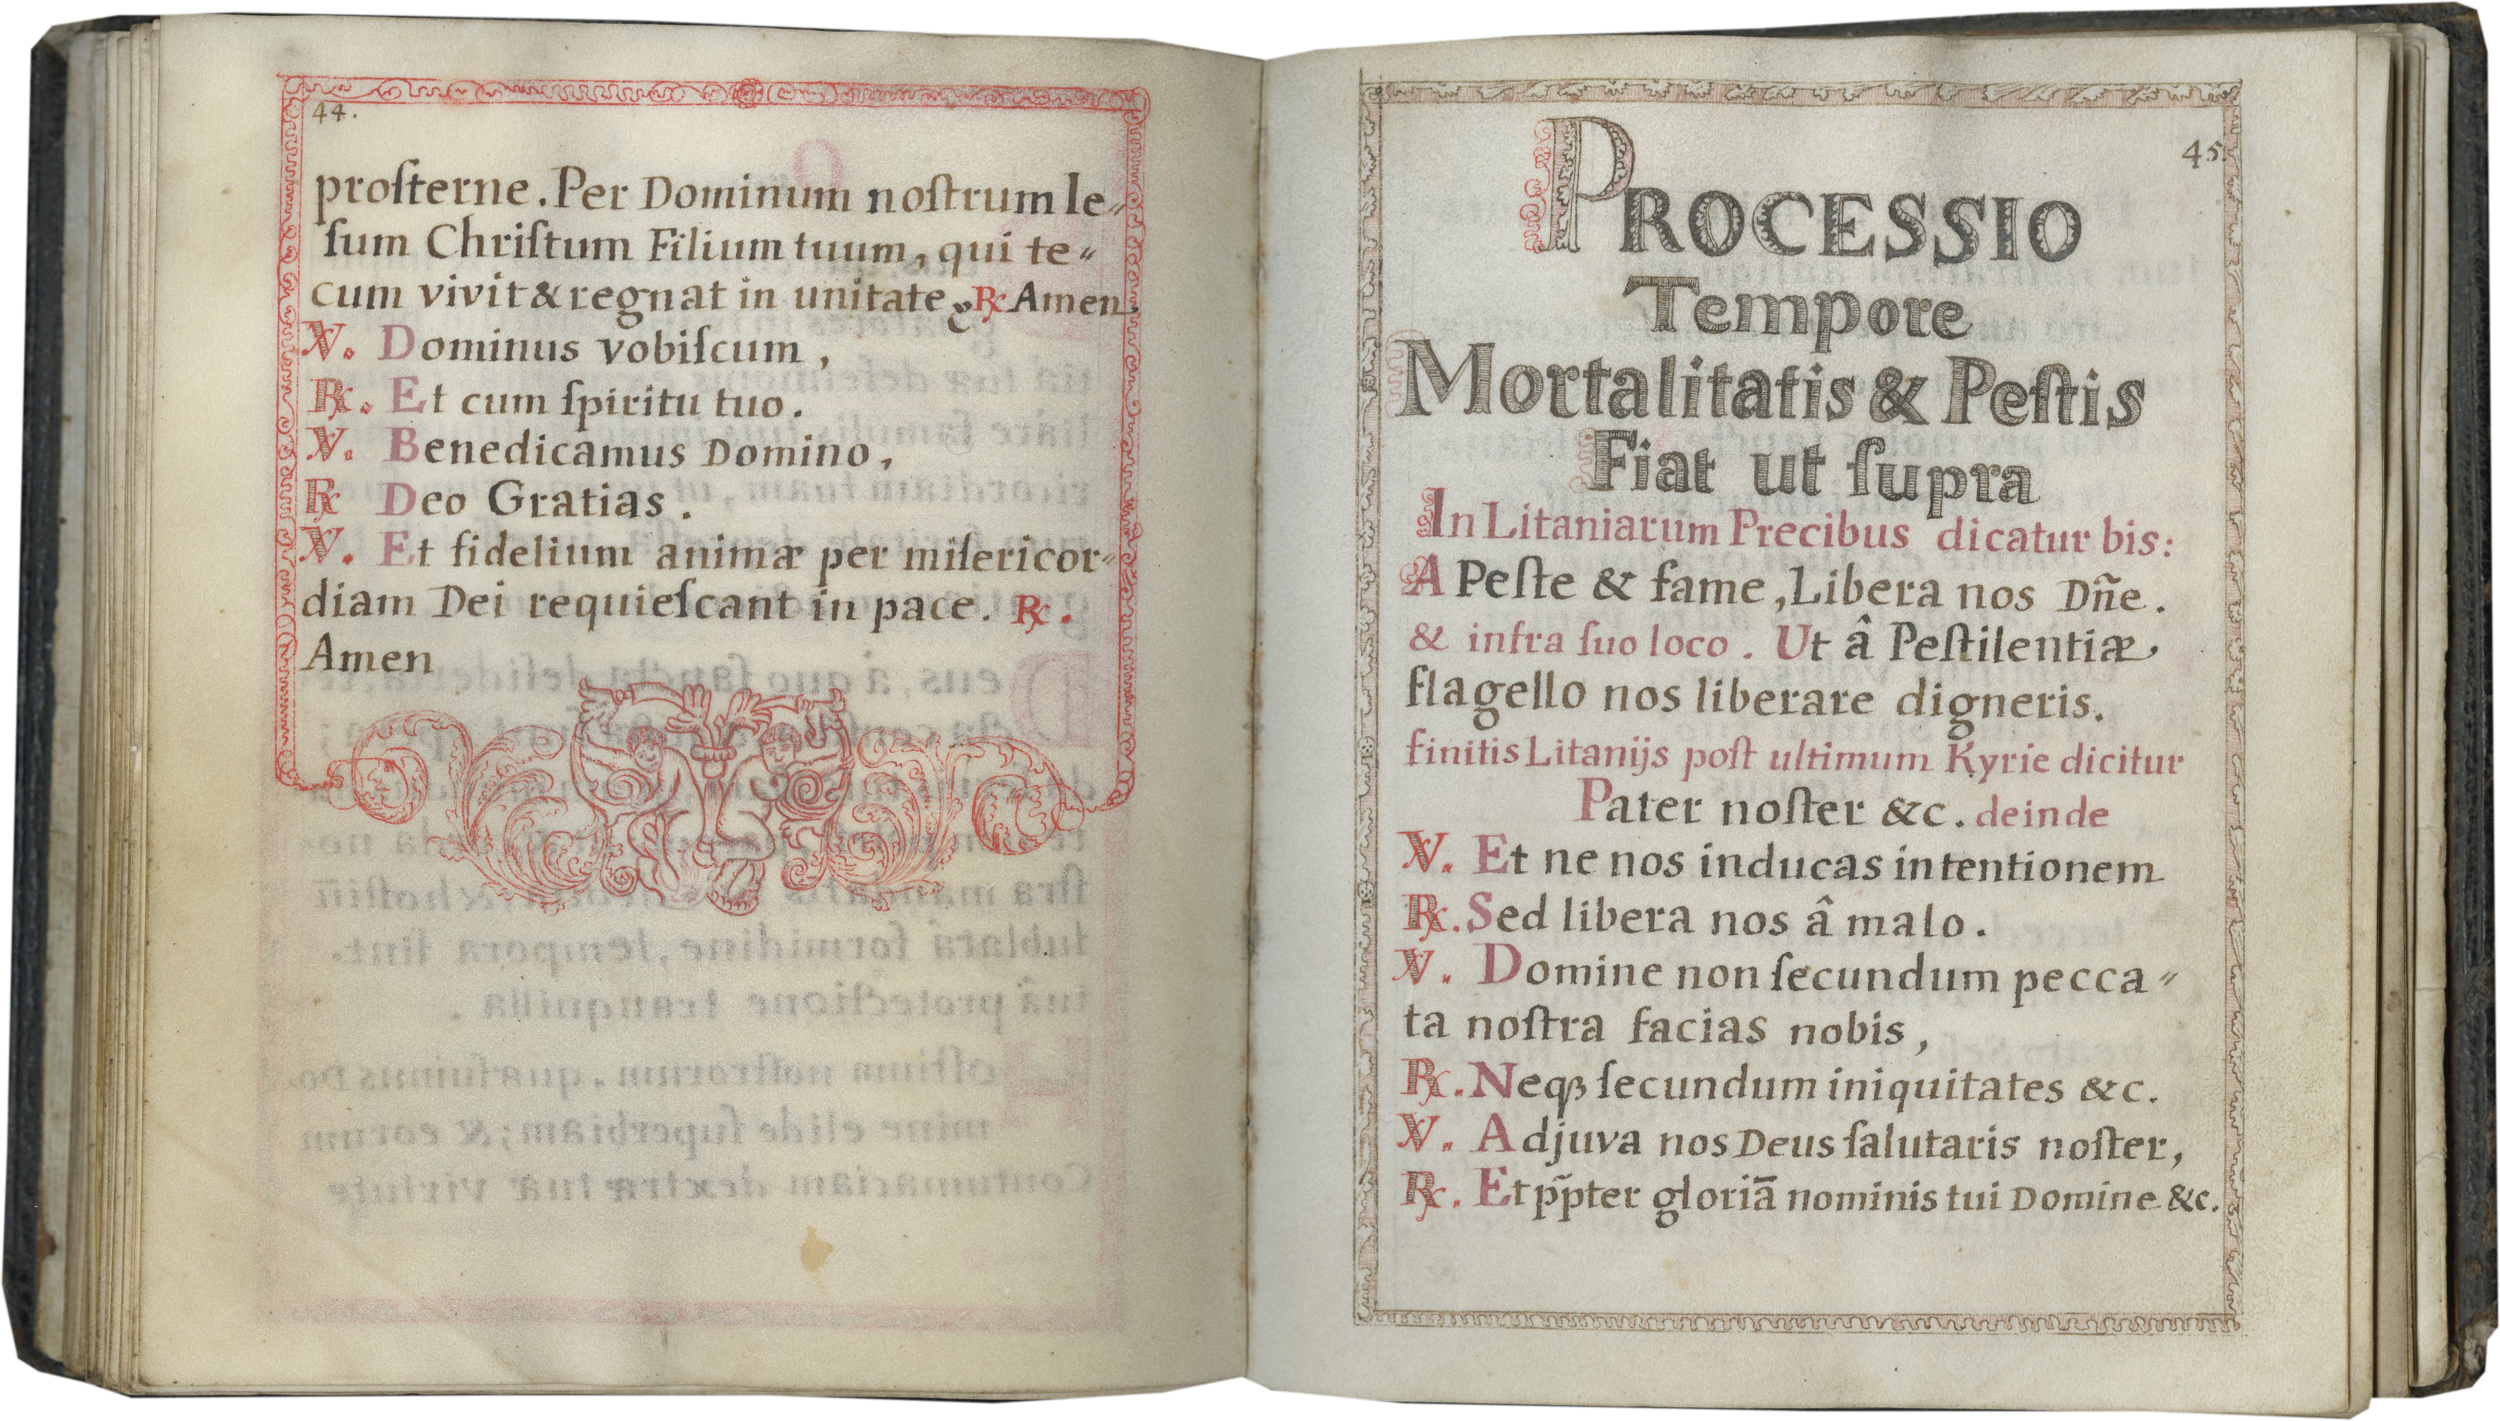 44.
proſterne. Per Dominum noſtrum Ie„
ſum Chriſtum Filium tuum, qui te„
cum vivit & regnat in unitate &. ℟ Amen.
℣. Dominus vobiſcum,
℟. Et cum ſpiritu tuo.
℣. Benedicamus Domino,
℟ Deo Gratias.
℣. Et fidelium animæ per miſericor„
diam Dei requieſcant in pace. ℟.
Amen
45.
PROCESSIO
Tempore
Mortalitatis & Peſtis
Fiat ut ſupra
In Litaniarum Precibus dicatur bis:
A Peſte & fame, Libera nos Dñe.
& infra ſuo loco. Ut â Peſtilentiæ
flagello nos liberare digneris.
finitis Litanijs poſt ultimum Kyrie dicitur
Pater noſter &c. deinde
℣. Et ne nos inducas in tentionem
℟. Sed libera nos â malo.
℣. Domine non ſecundum pecca„
ta noſtra facias nobis,
℟. Neqꝫ ſecundum iniquitates &c.
℣. Adjuva nos Deus ſalutaris noſter,
℟. Et pp̃ter gloriā nominis tui Domine &c.